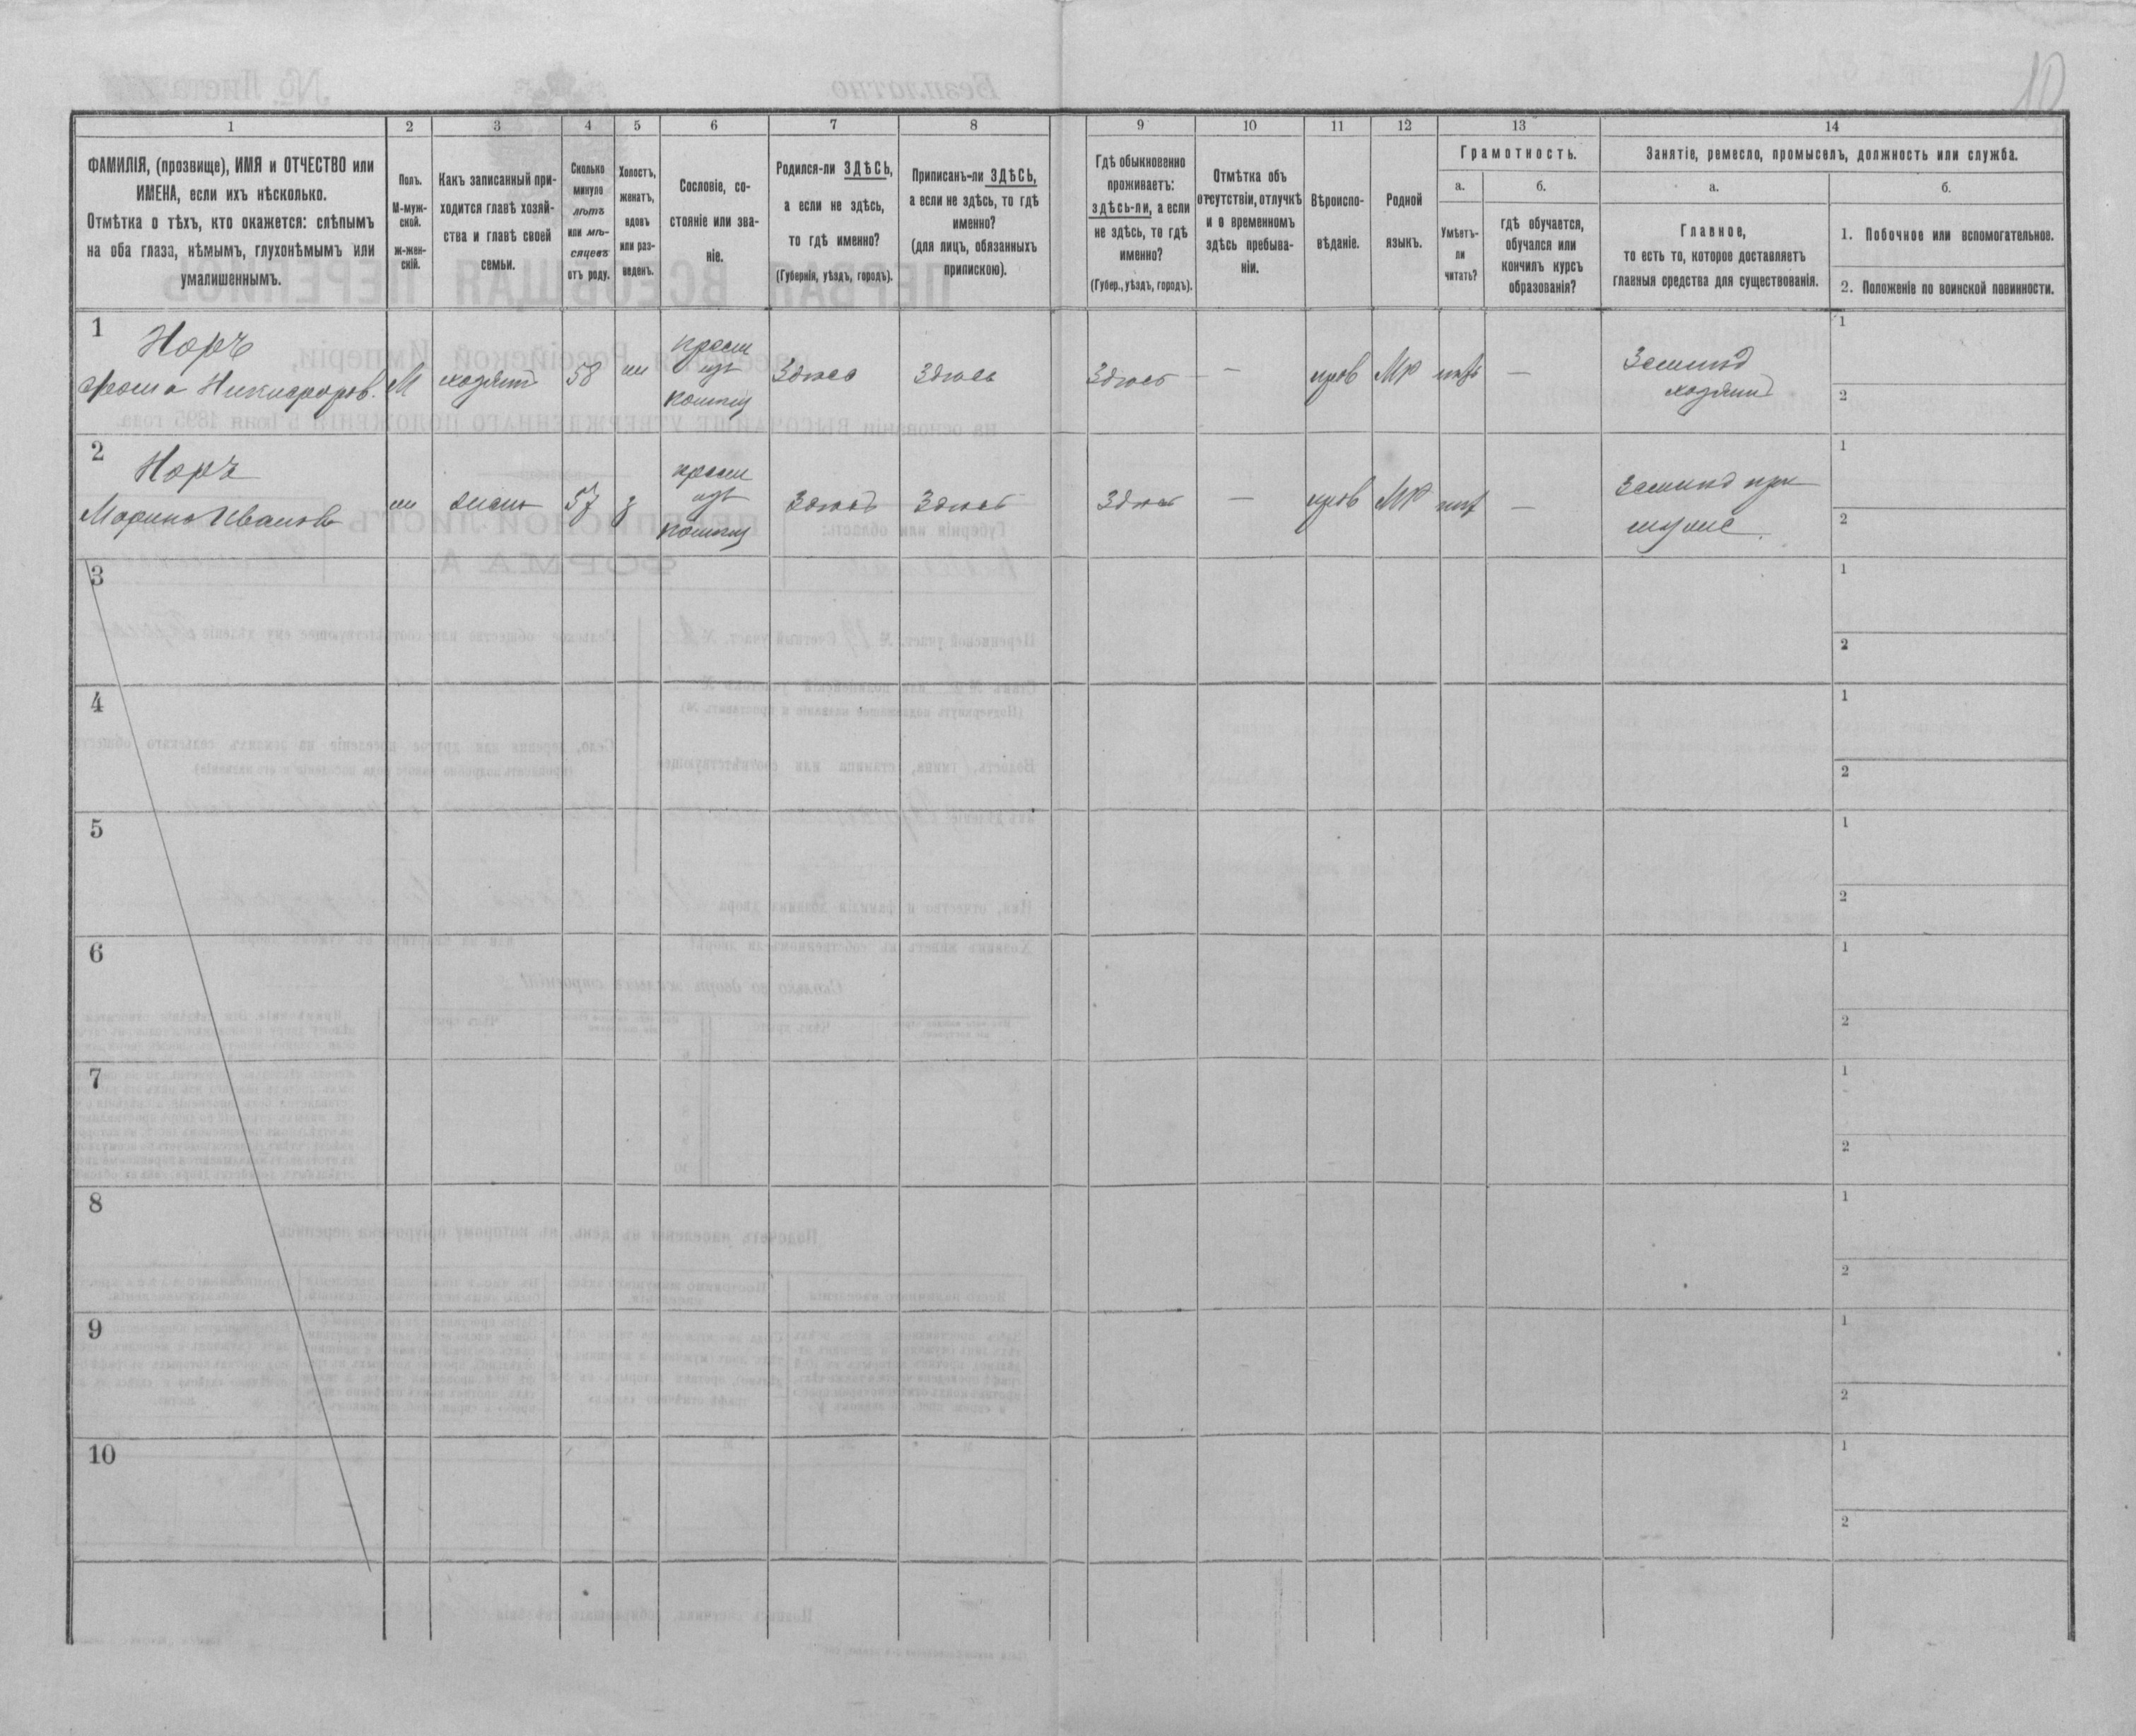 10
1
2
3
4
5
6
7
8
9
10
11
12
13
14
ФАМИЛІЯ, (прозвище), ИМЯ и ОТЧЕСТВО или
ИМЕНА, если ихъ нѣсколько.
Отмѣтка о тѣхъ, кто окажется: слѣпымъ
на оба глаза, нѣмымъ, глухонѣмымъ или
умалишеннымъ.
Полъ.
М-муж-
ской.
ж-жен-
скій.
Какъ записанный при-
ходится главѣ хозяй-
ства и главѣ своей
семьи.
Сколько
минуло
лѣтъ
или мѣ-
сяцевъ
отъ роду.
Холостъ,
женатъ,
вдовъ
или раз-
веденъ.
Сословіе, со-
стояніе или зва-
ніе.
Родился-ли ЗДѢСЬ,
а если не здѣсь,
то гдѣ именно?
(Губернія, уѣздъ, городъ).
Приписанъ-ли ЗДѢСЬ,
а если не здѣсь, то гдѣ
именно?
(для лицъ, обязанныхъ
припискою).
Гдѣ обыкновенно
проживаетъ:
здѣсь-ли, а если
не здѣсь, то гдѣ
именно?
(Губер., уѣздъ, городъ).
Отмѣтка объ
отсутствіи, отлучкѣ
и о временномъ
здѣсь пребыва-
ніи.
Вѣроиспо-
вѣданіе.
Родной
языкъ.
Грамотность.
а.
Умѣетъ-
ли
читать?
б.
гдѣ обучается,
обучался или
кончилъ курсъ
образованія?
Занятіе, ремесло, промыселъ, должность или служба.
а.
Главное,
то есть то, которое доставляетъ
главныя средства для существованія.
б.
1. Побочное или вспомогательное.
2. Положеніе по воинской повинности.
1
Норъ
Фома Никифоров.
М
хозяинъ
58
крест
из
Здѣсь
Здѣсь
Здѣсь
—
прав
МР
нѣтъ
—
Землед
хозяинъ
1
2
2
Норъ
Марина Иванов
жена
57
крест
из
Здѣсь
Здѣсь
Здѣсь
—
прав
МР
нѣт
—
Землед при
муже.
1
2
3
1
2
4
1
2
5
1
2
6
1
2
7
1
2
8
1
2
9
1
2
10
1
2